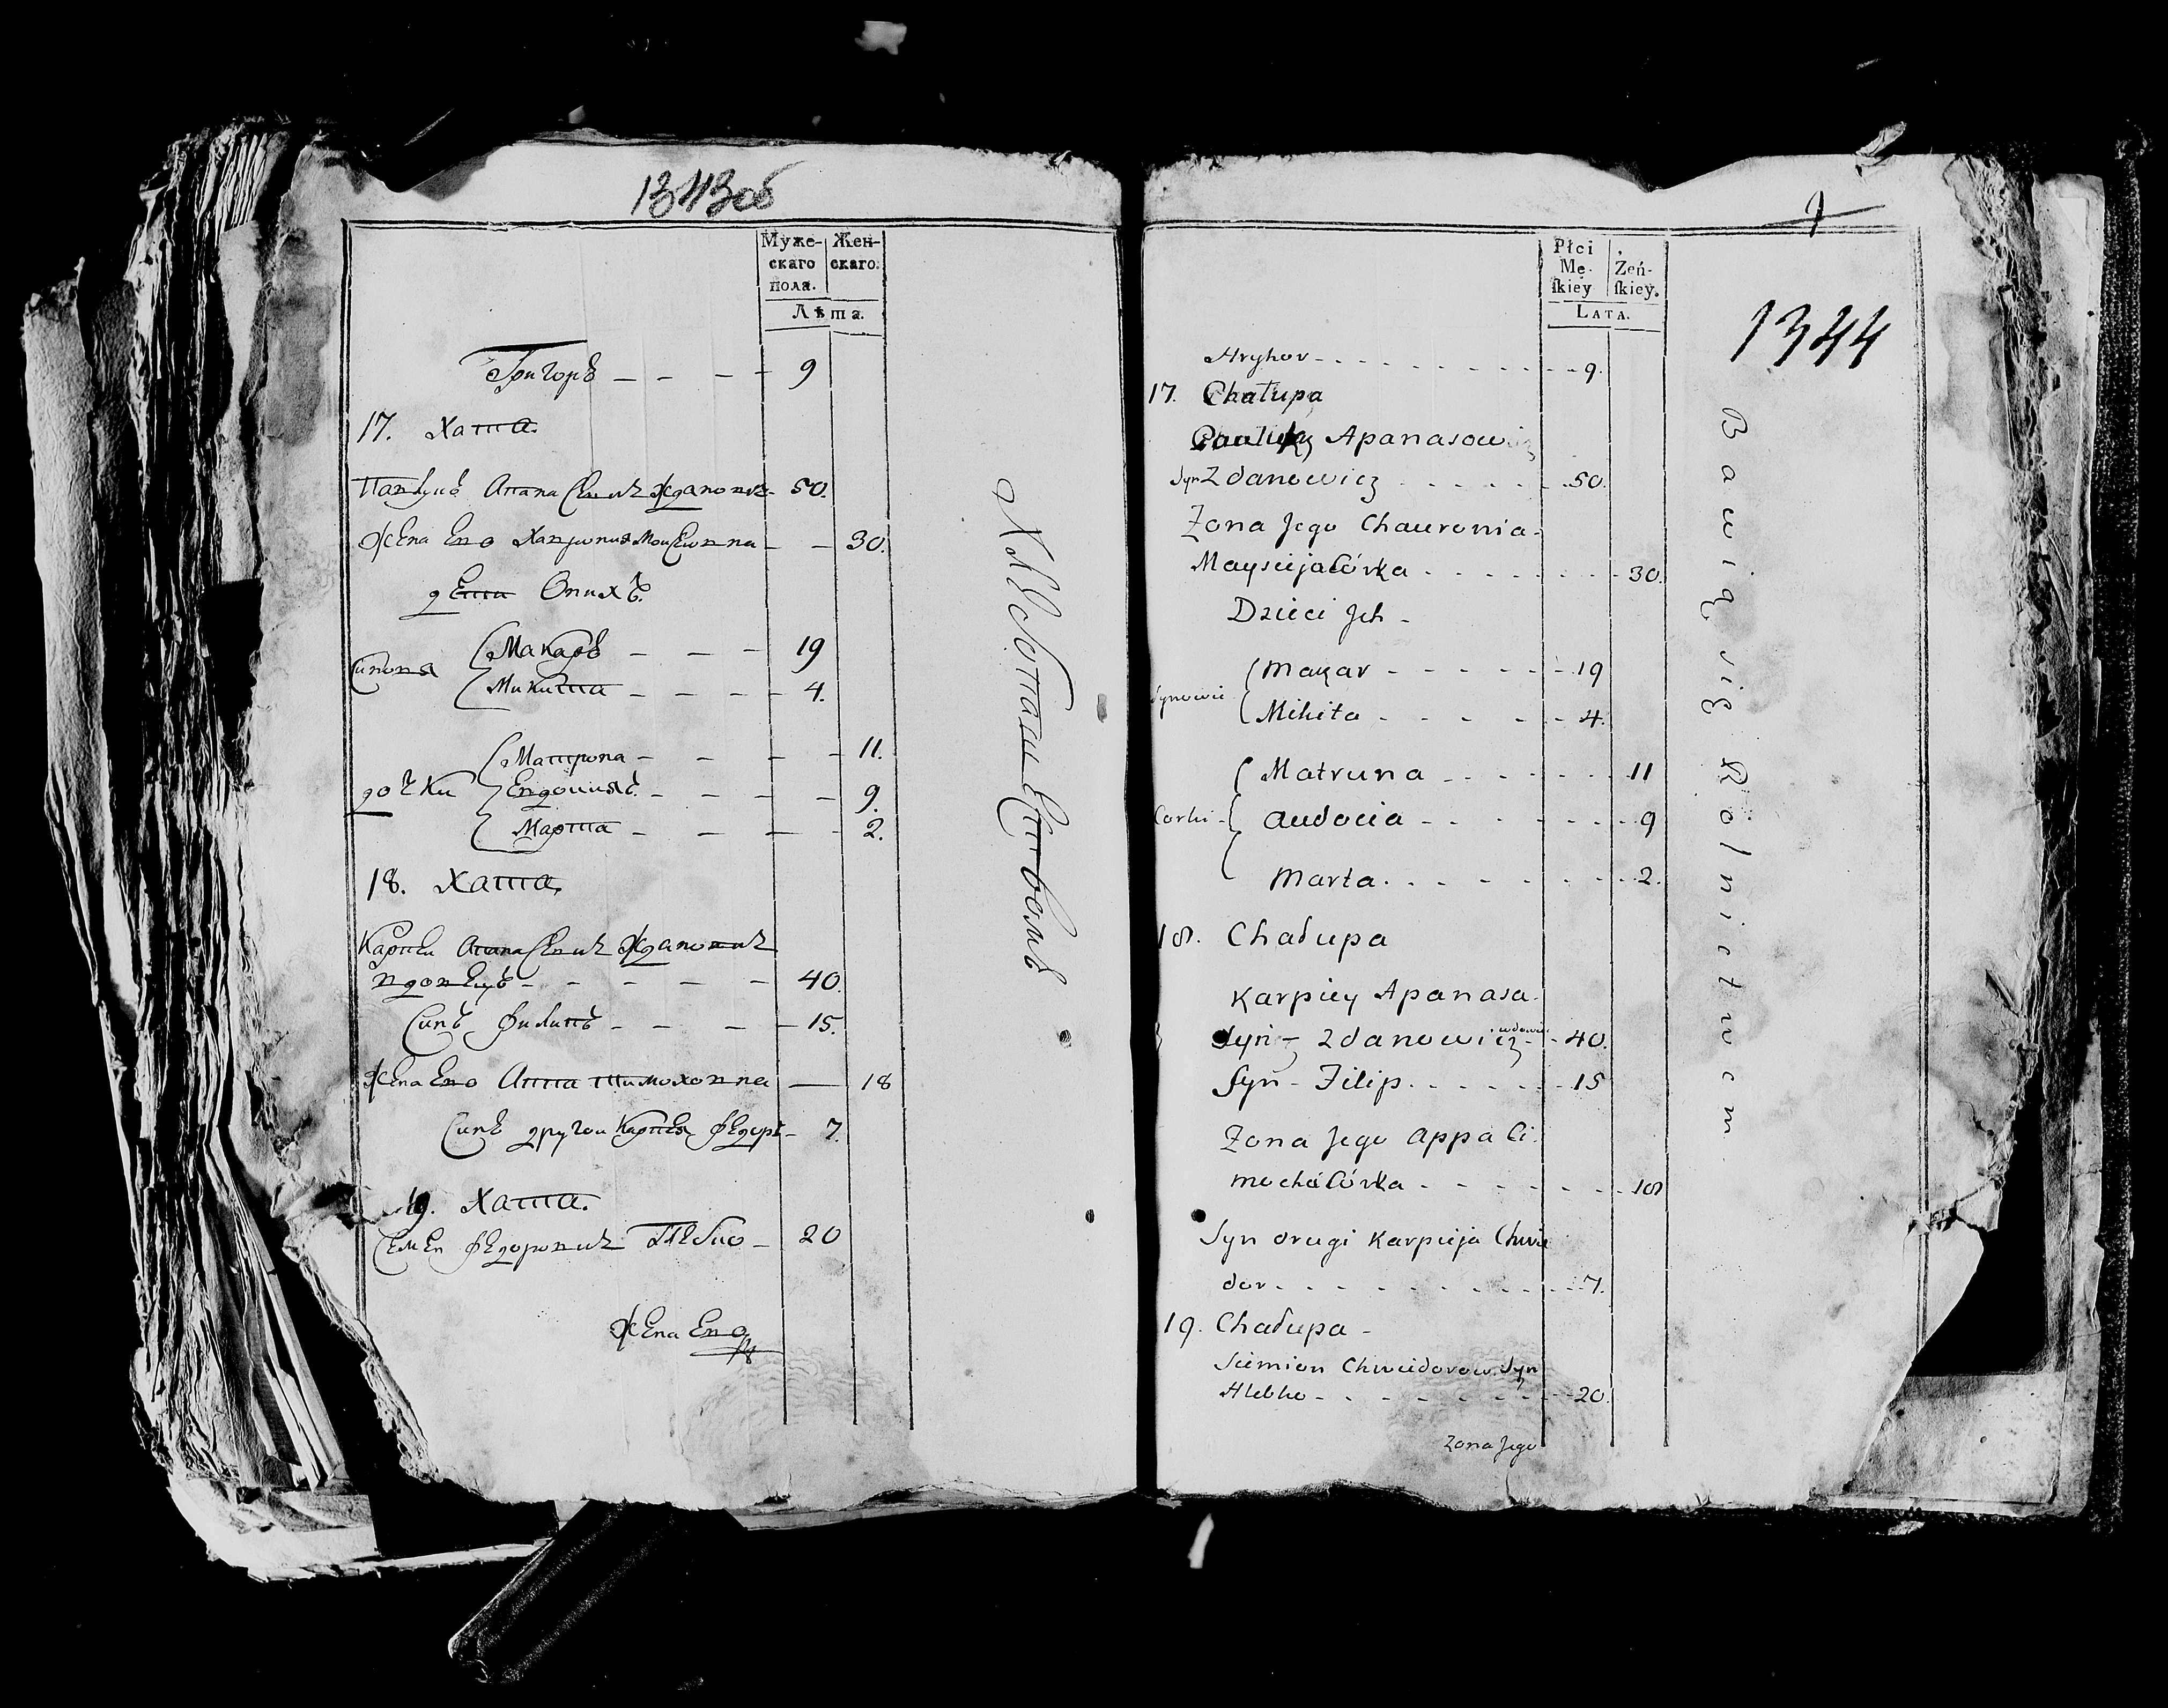 1343об
Муже-
скаго
пола.
Жен-
скаго.
Лѣта.
Григоръ - - - - 9
17. Хата.
Павлукъ Апанасевичъ Жданович - 50.
Жена Его Хавронія Моисеивна - - 30.
дети Онихъ.
Синовя
Макаръ - - - 19
Микита - - - - 4.
дочки
Матрона - - - - 11.
Евдоция - - - - 9.
Марта - - - - 2.
18. Хата.
Карпеи Апанасевичъ Жданович
вдовецъ - - - - - 40.
Синъ Филипъ - - - - 15.
Жена Его Аппа Тимоховна — 18
Синъ другои Карпея Федоръ - 7.
19. Хата.
Семен Федорович Глебко - 20
Жена Его
Хлебопашествомъ
Płci
Mę-
ſkiey
Żeń-
ſkiey.
LATA.
1344
Hryhor - - - - - 9.
17. Chałupa
Apanasowicz
Syn Zdanowicz - - - - 50.
Zona Jego Chauronia -
Maysieja Córka - - - - 30.
Dzieci Jch -
Synowie
Makar - - - - - 19
Mikita - - - - - 4.
Corki -
Matruna - - - - - 11
Audocia - - - - - 9
Marta. - - - - - 2.
18. Chałupa
Karpiey Apanasa.
Syn - Zdanowicz wdowiec - 40.
Syn - Filip. - - - - 15
Zona Jego Appa Ci.
mocha Córka - - - - 18
Syn drugi Karpieja Chwie
dor - - - - - 7.
19. Chałupa -
Siemion Chwiedorow Syn
Hlebko - - - - - 20.
Zona Jego
Bawią się Rolnictwem